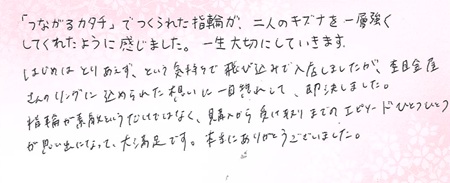 「つながるカタチ」でつくられた指輪が、二人のキズナを一層強く
してくれたように感じました。一生大切にしていきます。
はじめはとりあえず、という気持ちで飛び込みで入店しましたが、杢目金屋
さんのリングに込められた想いに一目惚れして、即決しました。
指輪が素敵というだけではなく、購入から受け取りまでのエピソードひとつひとつ
が思い出になって、大満足です。本当にありがとうございました。